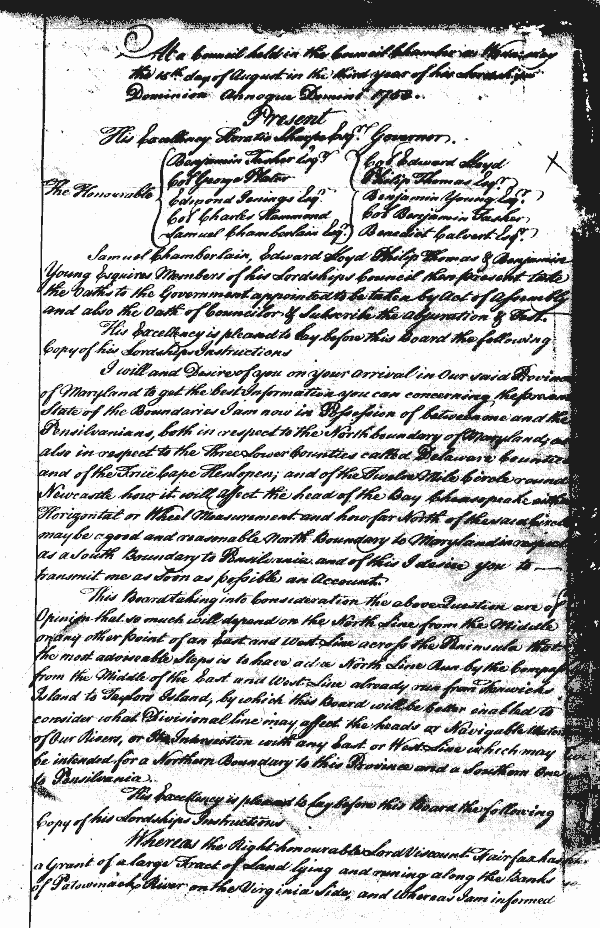 At a Council held in the Council Chamber on Wednesday
the 15th day of August in the third year of his Lordships
Dominion Annoque Domini 1753.
Present
His Excellency Horatio Sharpe Esqr. Governor.
The Honourable
Benjamin Tasker Esqr.
Col. George Plater
Edmond Jenings Esqr.
Col. Charles Hammond
Samuel Chamberlain Esqr.
Col. Edward Lloyd
Philip Thomas Esqr.
Benjamin Young Esqr.
Col. Benjamin Tasker
Benedict Calvert Esqr.
Samuel Chamberlain, Edward Lloyd Philip Thomas & Benjamin
Young Esquires Members of his Lordships Council then present take
the Oaths to the Government appointed to be taken by Act of Assembly
and also the Oath of Councilor & Subscribe the Abjuration & Test.
His Excellency is pleased to lay before this Board the following
Copy of his Lordships Instructions
I will and Desire of you on your arrival in Our said Province
of Maryland to get the best Information you can concerning the present
State of the Boundaries I am now in Possession of between me and the
Pensilvanians, both in respect to the North boundary of Maryland, as
also in respect to the Three Lower Counties called Delaware Counties
and of the True Cape Henlopen; and of the Twelve Mile Circle round
Newcastle how it will affect the head of the Bay Chesopeake either
Horizontal or Wheel Measurement and how far North of the said Circle
may be a good and reasonable North Boundary to Maryland in respect
as a South Boundary to Pensilvania and of this I desire you to
transmit me as soon as possible an Account.
This Board taking into Consideration the above Question are of
Opinion that so much will depend on the North Line from the Middle
or any other Point of an East and West Line across the Peninsula that
the most adviseable Steps is to have a North Line Run by the Compass
from the Middle of the East and West Line already run from Fenwicks
Island to Taylors Island, by which this Board will be better enabled to
consider what Divisional line may affect the heads or Navigable Waters
of Our Rivers, or the Intersection with any East or West Line which may
be intended for a Northern Boundary to this Province and a Southern One
to Pensilvania.
His Excellency is pleased to lay before this Board the following
Copy of his Lordships Instructions
Whereas the Right honourable Lord Viscount Fairfax has
a Grant of a large Tract of Land lying and runing along the Banks
of Patowmack River on the Virginia Side, and Whereas I am informed